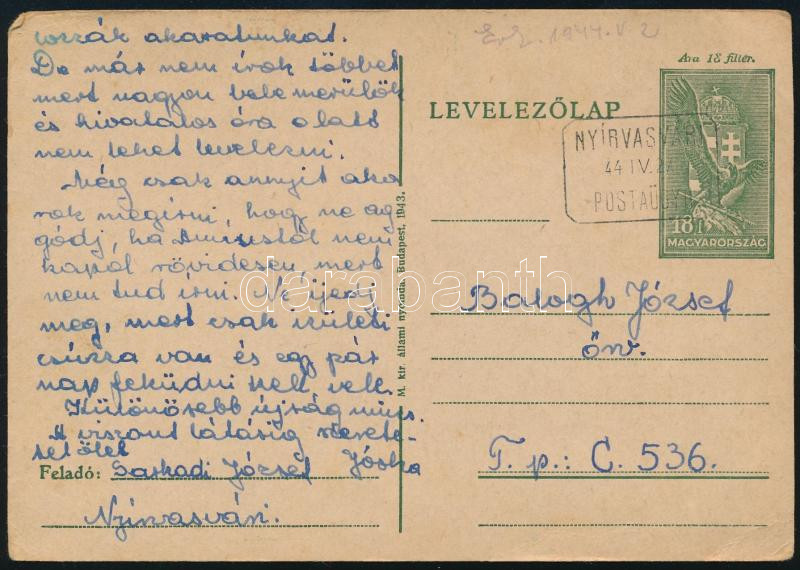 rozzák akaratunkat.
De már nem írok többet
mert nagyon bele merülök
és hivatalos óra alatt
nem lehet levelezni.
Még csak annyit aka
rok megírni, hogy ne ag
gódj, ha tól nem
kapol rövidesen, mert
nem tud írni. Ne ijedj
meg, mert csak izületi
csúza van és egy pár
nap feküdni kell vele.
Különösebb újság nincs.
A viszont látásig szerete-
tettel Jóska
Feladó: Sarkadi József
Nyírvasvári.
M. kir. állami nyomda, Budapest, 1943.
Érk. 1944. V. 2
Ára 18 fillér.
LEVELEZŐLAP
NYÍRVASVÁRI
44 IV. 2
POSTAÜGYN
18 f
MAGYARORSZÁG
Balogh József
őrv.
T. p.: C. 536.
darabanth